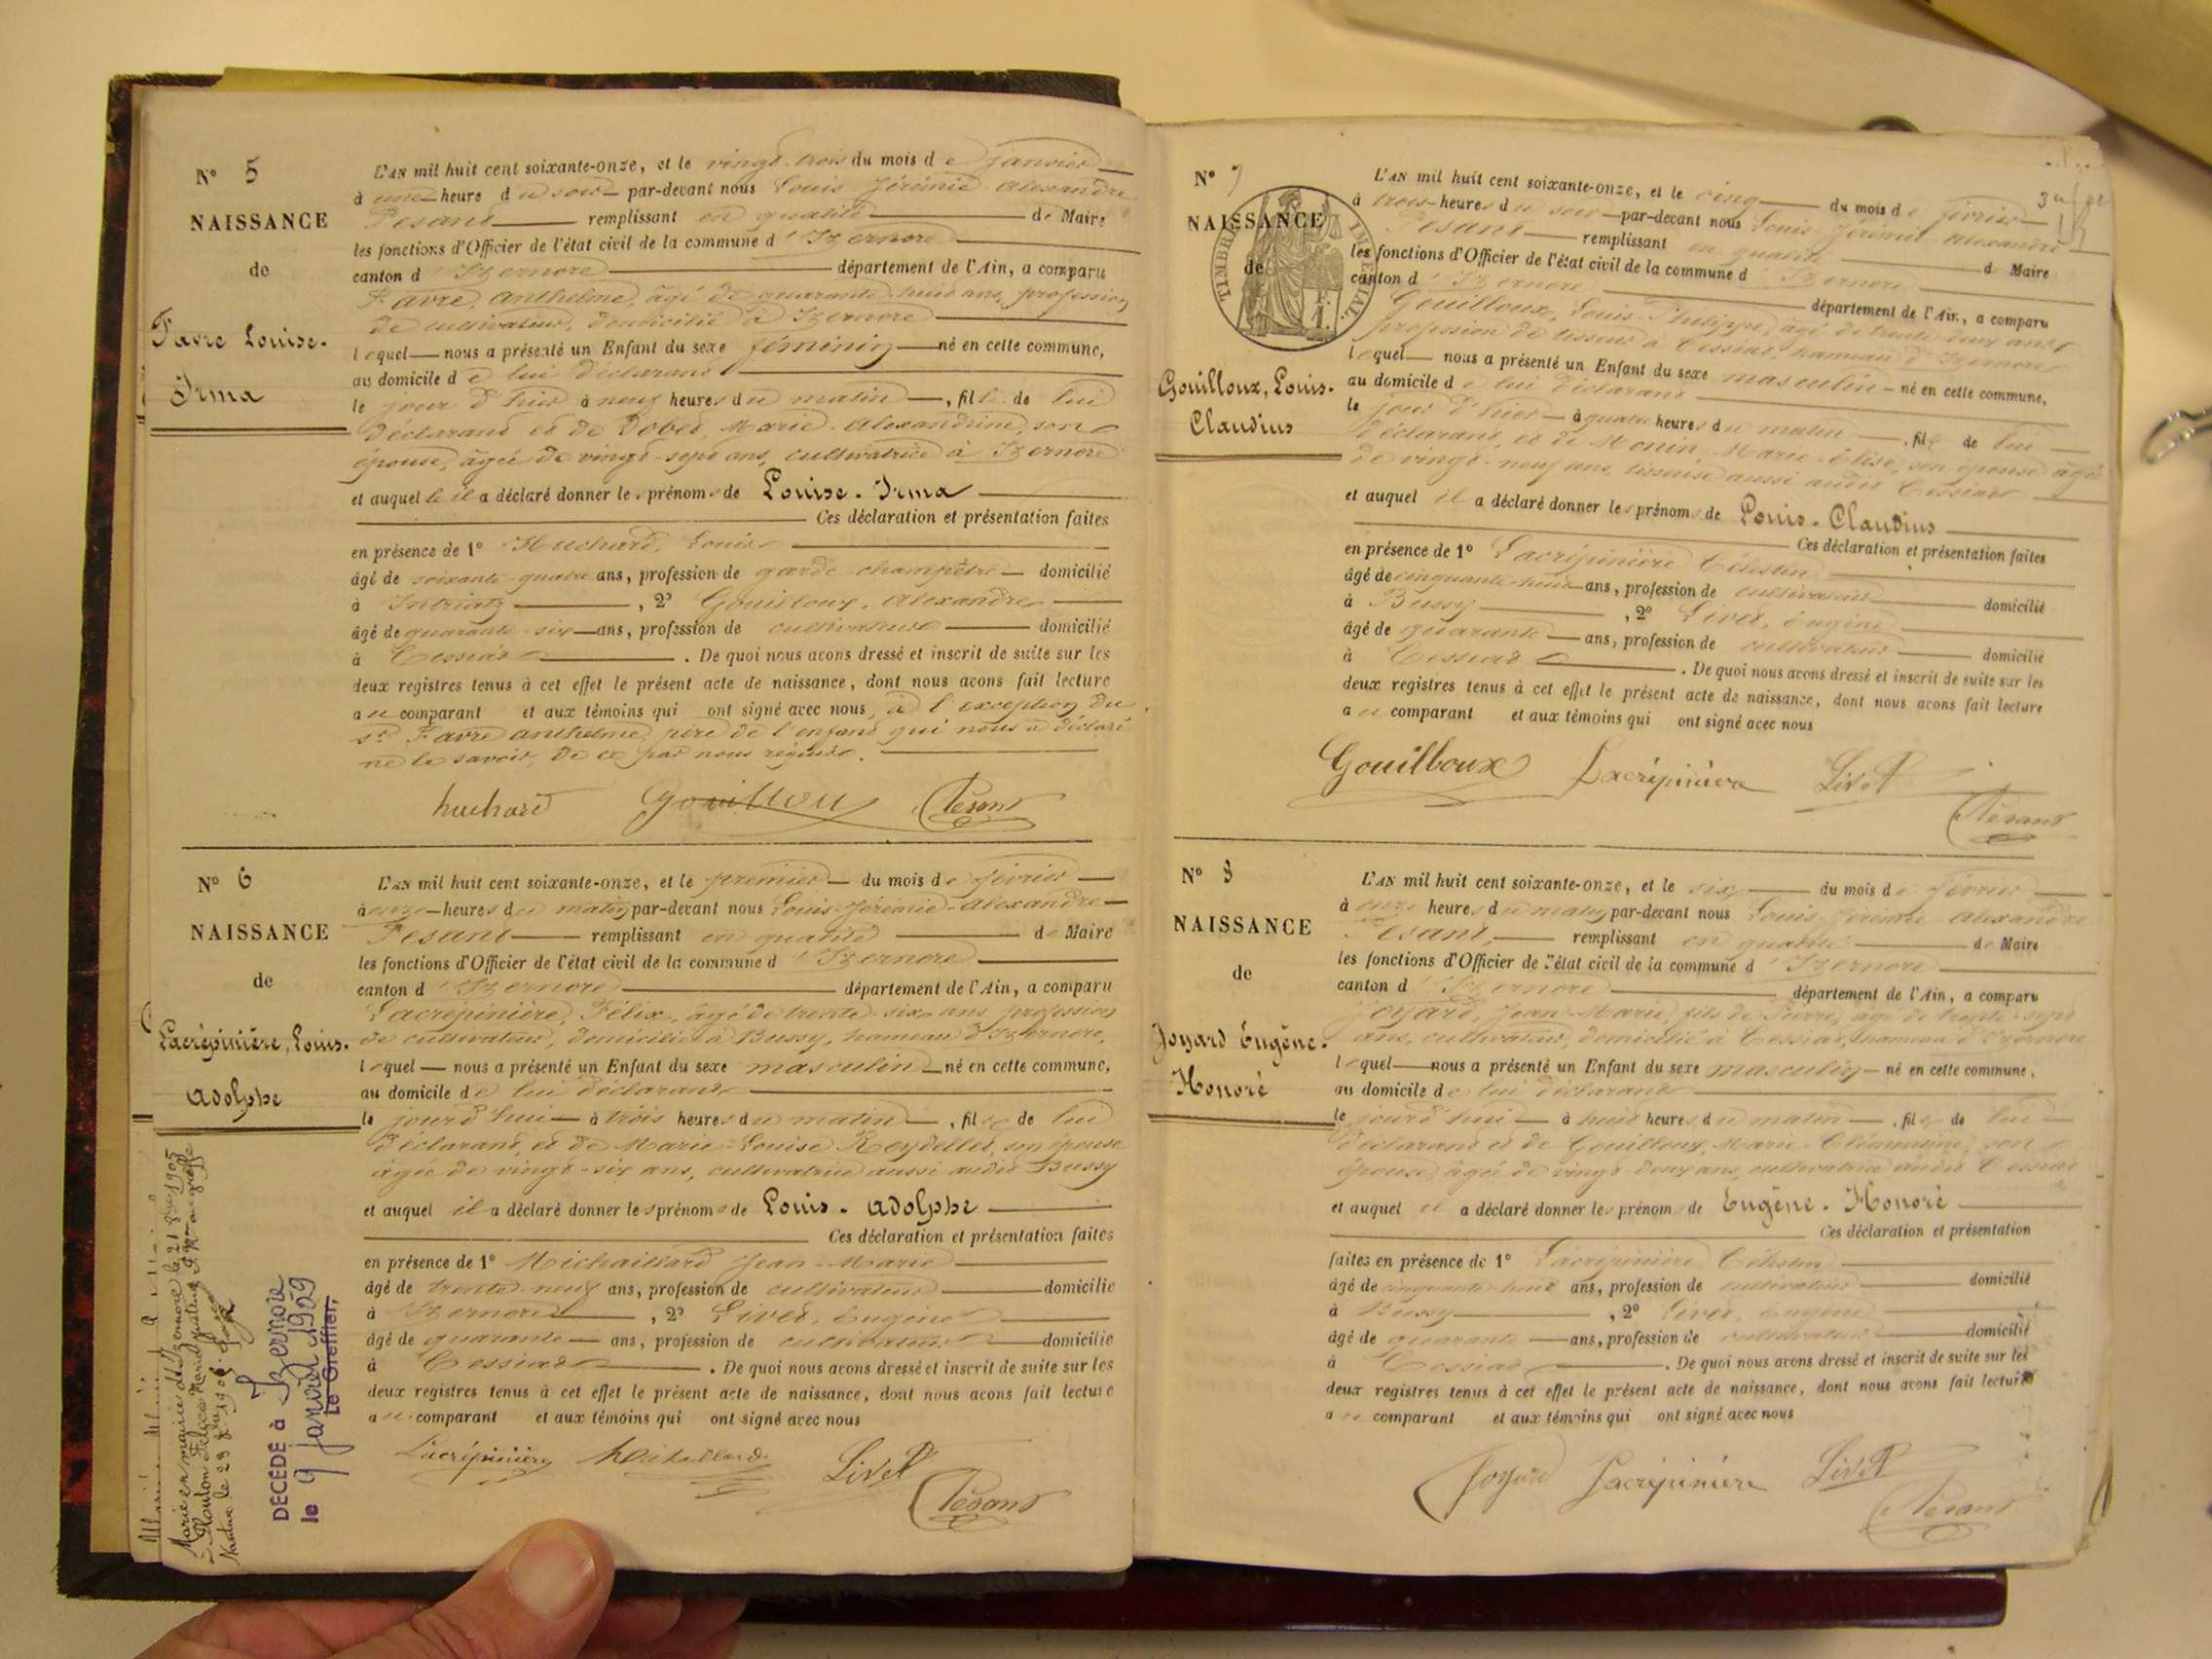 N° 5
NAISSANCE
de
Favre Louise-
Irma
L'AN mil huit cent soixante-onze, et le vingt-trois du mois de janvier
à une heure du soir par-devant nous Louis Jérémie Alexandre
Pesant remplissant en qualité de Maire
les fonctions d'Officier de l'état civil de la commune d'Izernore
canton d'Izernore département de l'Ain, a comparu
Favre, Anthelme, âgé de quarante-huit ans, profession
de cultivateur, domicilié à Izernore
lequel nous a présenté un Enfant du sexe féminin né en cette commune,
au domicile de lui déclarant
le jour d'hier à neuf heures du matin, fille de lui
déclarant et de Marie-Alexandrine, son
épouse, âgée de vingt-sept ans, cultivatrice à Izernore
et auquel le il a déclaré donner les prénoms de Louise-Irma
Ces déclaration et présentation faites
en présence de 1° Huchard, Louis
âgé de soixante-quatre ans, profession de garde champêtre domicilié
à Intriatz, 2° Gouilloux, Alexandre
âgé de quarante-six ans, profession de cultivateur domicilié
à Cessiat. De quoi nous avons dressé et inscrit de suite sur les
deux registres tenus à cet effet le présent acte de naissance, dont nous avons fait lecture
au comparant et aux témoins qui ont signé avec nous, à l'exception du
sr Favre Anthelme, père de l'enfant qui nous a déclaré
ne le savoir, de ce par nous requis.
huchard Gouilloux Pésant
N° 6
NAISSANCE
de
Lacrépinière, Louis-
Adolphe
L'AN mil huit cent soixante-onze, et le premier du mois de février
à onze heures du matin par-devant nous Louis-Jérémie-Alexandre
Pesant remplissant en qualité de Maire
les fonctions d'Officier de l'état civil de la commune d'Izernore
canton d'Izernore département de l'Ain, a comparu
Lacrépinière, Félix, âgé de trente-six ans, profession
de cultivateur, domicilié à Bussy, hameau d'Izernore,
lequel nous a présenté un Enfant du sexe masculin né en cette commune,
au domicile de lui déclarant
le jourd'hui à trois heures du matin, fils de lui
déclarant et de Marie-Louise Reydellet, son épouse
âgée de vingt-six ans, cultivatrice aussi audit Bussy
et auquel il a déclaré donner les prénoms de Louis-Adolphe
Ces déclaration et présentation faites
en présence de 1° Michaillard Jean-Marie
âgé de trente-neuf ans, profession de cultivateur domicilié
à Izernore, 2° Livet, Eugène
âgé de quarante ans, profession de cultivateur domicilié
à Cessiat. De quoi nous avons dressé et inscrit de suite sur les
deux registres tenus à cet effet le présent acte de naissance, dont nous avons fait lecture
au comparant et aux témoins qui ont signé avec nous
Lacrépinière Michaillard Livet Pésant
Marié en mairie d'Izernore le 21 1905
DÉCÉDÉ à Izernore
le 9 janvier 1959
Le Greffier,
N° 7
NAISSANCE
de
TIMBRE IMPÉRIAL
1 F.
Gouilloux, Louis-
Claudius
L'AN mil huit cent soixante-onze, et le cinq du mois de février
à trois heures du soir par-devant nous Louis-Jérémie Alexandre
Pesant remplissant en qualité de Maire
les fonctions d'Officier de l'état civil de la commune d'Izernore
canton d'Izernore département de l'Ain, a comparu
Gouilloux, Louis-Philippe, âgé de trente-deux ans
profession de tisseur à Cessiat, hameau d'Izernore
lequel nous a présenté un Enfant du sexe masculin né en cette commune,
au domicile de lui déclarant
le jour d'hier à quatre heures du matin, fils de lui
déclarant, et de Monin, Marie-Élise, son épouse âgée
de vingt-neuf ans, tisseuse aussi audit Cessiat
et auquel il a déclaré donner les prénoms de Louis-Claudius
Ces déclaration et présentation faites
en présence de 1° Lacrépinière Célestin
âgé de cinquante-huit ans, profession de cultivateur domicilié
à Bussy, 2° Livet, Eugène
âgé de quarante ans, profession de cultivateur domicilié
à Cessiat. De quoi nous avons dressé et inscrit de suite sur les
deux registres tenus à cet effet le présent acte de naissance, dont nous avons fait lecture
au comparant et aux témoins qui ont signé avec nous
Gouilloux Lacrépinière Livet
Pésant
N° 8
NAISSANCE
de
Joyard Eugène-
Honoré
L'AN mil huit cent soixante-onze, et le six du mois de février
à onze heures du matin par-devant nous Louis-Jérémie Alexandre
Pesant, remplissant en qualité de Maire
les fonctions d'Officier de l'état civil de la commune d'Izernore
canton d'Izernore département de l'Ain, a comparu
Joyard, Jean-Marie, fils de Pierre, âgé de trente-sept
ans, cultivateur, domicilié à Cessiat, hameau d'Izernore
lequel nous a présenté un Enfant du sexe masculin né en cette commune,
au domicile de lui déclarant
le jourd'hui à huit heures du matin, fils de lui
déclarant et de Gouilloux, Marie-Clémentine, son
épouse, âgée de vingt-deux ans, cultivatrice audit Cessiat
et auquel il a déclaré donner les prénoms de Eugène-Honoré
Ces déclaration et présentation
faites en présence de 1° Lacrépinière Célestin
âgé de cinquante-huit ans, profession de cultivateur domicilié
à Bussy, 2° Livet, Eugène
âgé de quarante ans, profession de cultivateur domicilié
à Cessiat. De quoi nous avons dressé et inscrit de suite sur les
deux registres tenus à cet effet le présent acte de naissance, dont nous avons fait lecture
au comparant et aux témoins qui ont signé avec nous
Joyard Lacrépinière Livet
Pésant